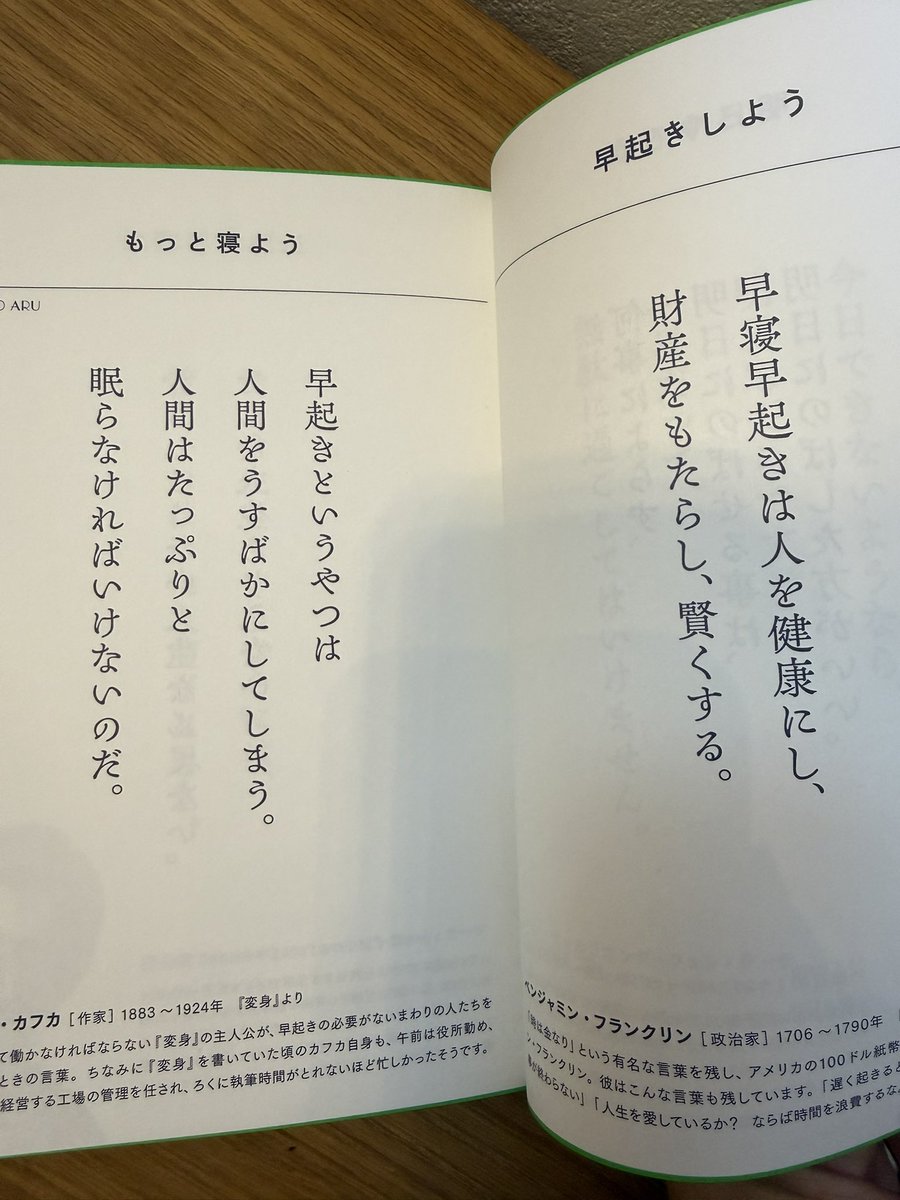 早起きしよう
早寝早起きは人を健康にし、
財産をもたらし、賢くする。
ベンジャミン・フランクリン［政治家］1706〜1790年
「時は金なり」という有名な言葉を残し、アメリカの100ドル紙幣
ン・フランクリン。彼はこんな言葉も残しています。「遅く起きると
事が終わらない」「人生を愛しているか？　ならば時間を浪費するな。
もっと寝よう
ARU
早起きというやつは
人間をうすばかにしてしまう。
人間はたっぷりと
眠らなければいけないのだ。
・カフカ［作家］1883〜1924年　『変身』より
て働かなければならない『変身』の主人公が、早起きの必要がないまわりの人たちを
ときの言葉。ちなみに『変身』を書いていた頃のカフカ自身も、午前は役所勤め、
経営する工場の管理を任され、ろくに執筆時間がとれないほど忙しかったそうです。